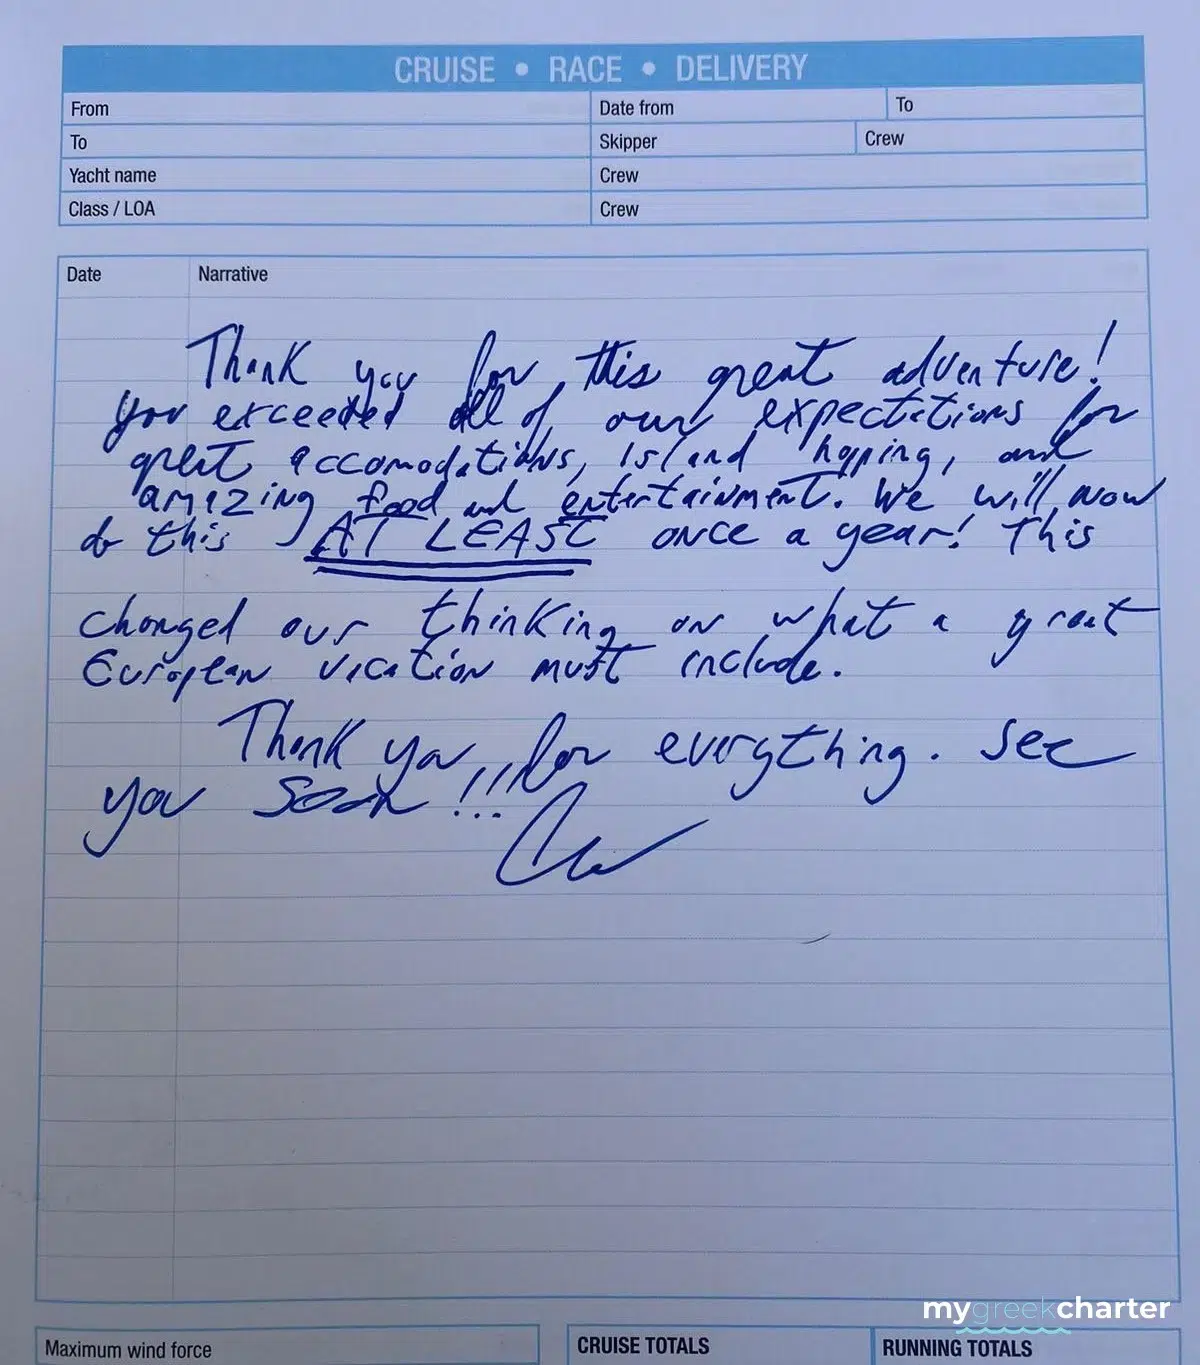 CRUISE • RACE • DELIVERY
From
Date from
To
To
Skipper
Crew
Yacht name
Crew
Class / LOA
Crew
Date
Narrative
Thank you for this great adventure!
You exceeded all of our expectations for
great accomodations, island hopping, and
amazing food and entertainment. We will now
do this AT LEAST once a year! This
changed our thinking on what a great
European vacation must include.
Thank you for everything. See
you soon!!!
mygreekcharter
Maximum wind force
CRUISE TOTALS
RUNNING TOTALS